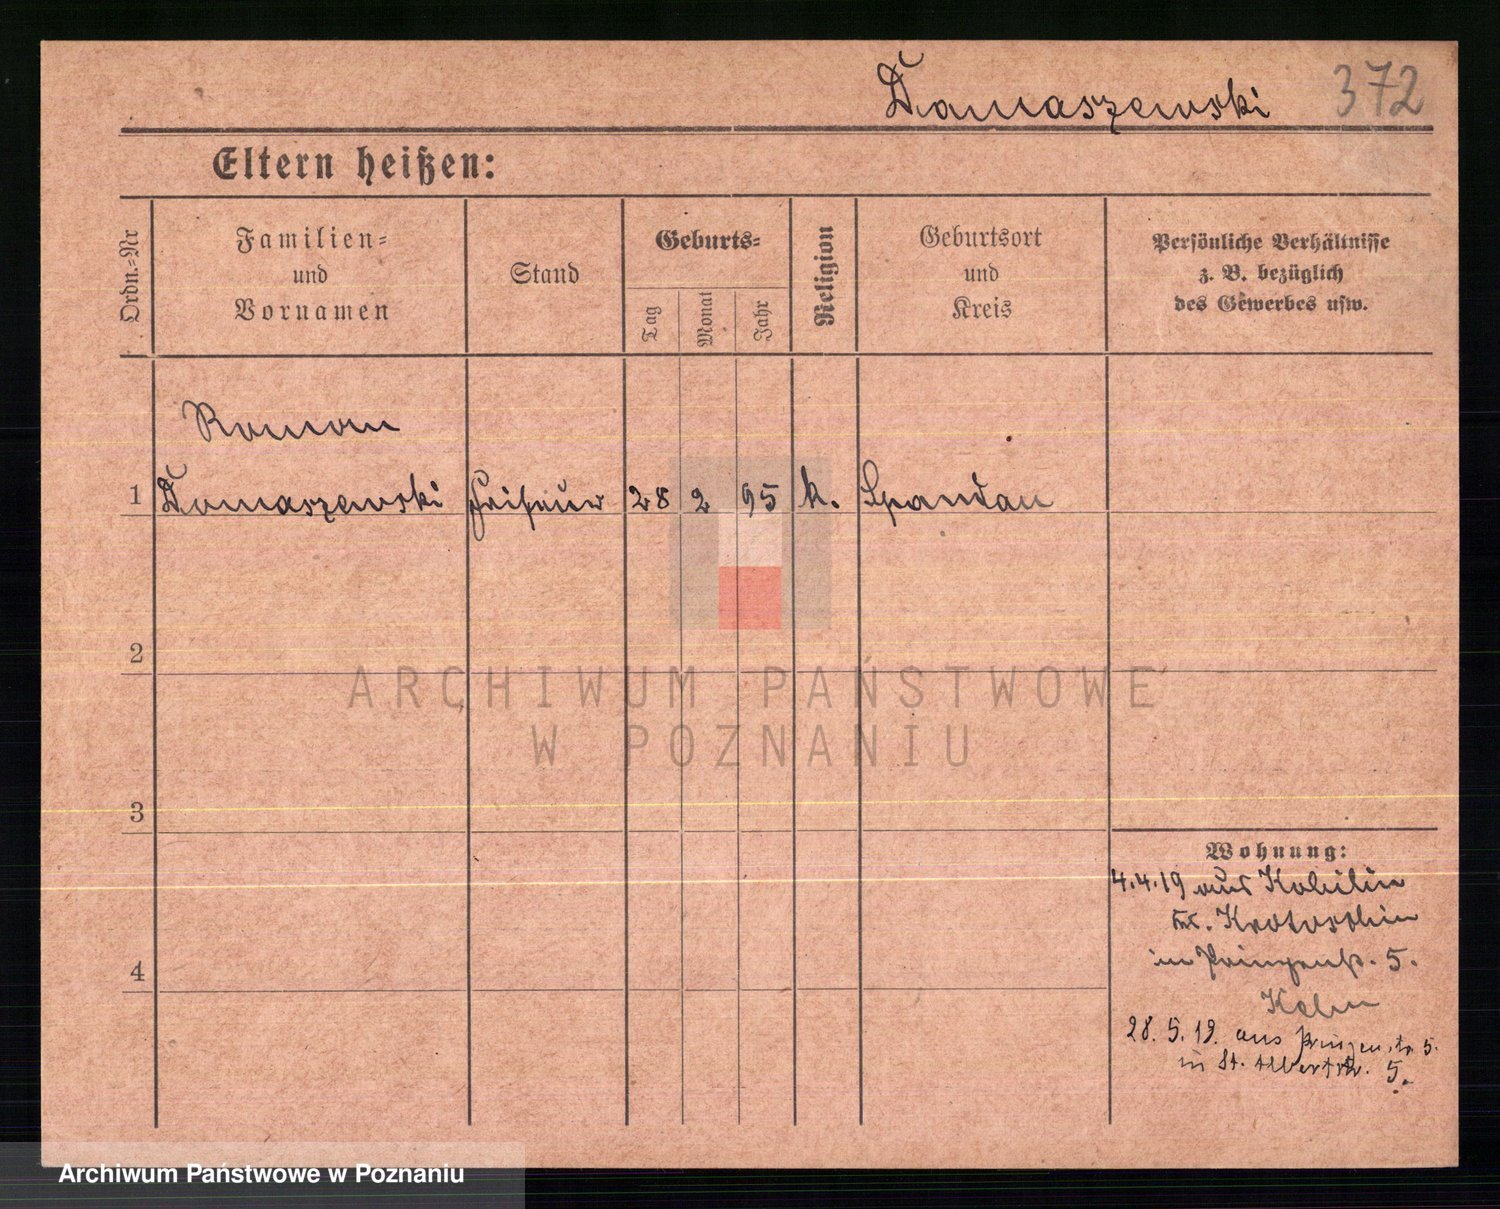 Domaszewski 372
Eltern heißen:
Ordn.-Nr
Familien-
und
Vornamen
Stand
Geburts-
Tag
Monat
Jahr
Religion
Geburtsort
und
Kreis
Persönliche Verhältnisse
z. B. bezüglich
des Gewerbes usw.
Roman
1 Domaszewski Friseur 28 2 95 k. Spandau
2
3
4
Wohnung:
4.4.19 aus Kobilin
Kr. Krotoschin
in Prinzenstr. 5.
28. 5. 19. aus Prinzenstr. 5.
in St. Albertstr. 5.
ARCHIWUM PAŃSTWOWE
W POZNANIU
Archiwum Państwowe w Poznaniu